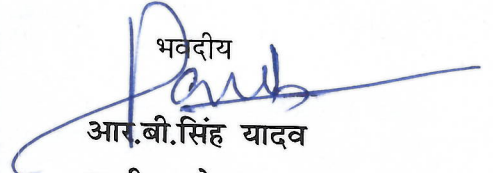 भवदीय
आर.बी.सिंह यादव